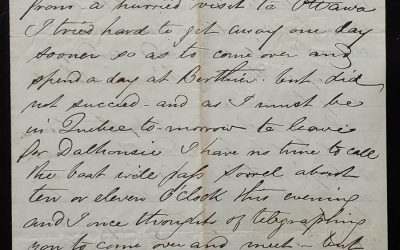 from a hurried visit to Ottawa
I tried hard to get away one day
sooner so as to come over and
spend a day at Berthier - but did
not succeed - and as I must be
in Quebec to-morrow to leave
for Dalhousie I have no time to call
the boat will pass Sorel about
ten or eleven O'Clock this evening
and I once thought of telegraphing
you to come over and meet - but